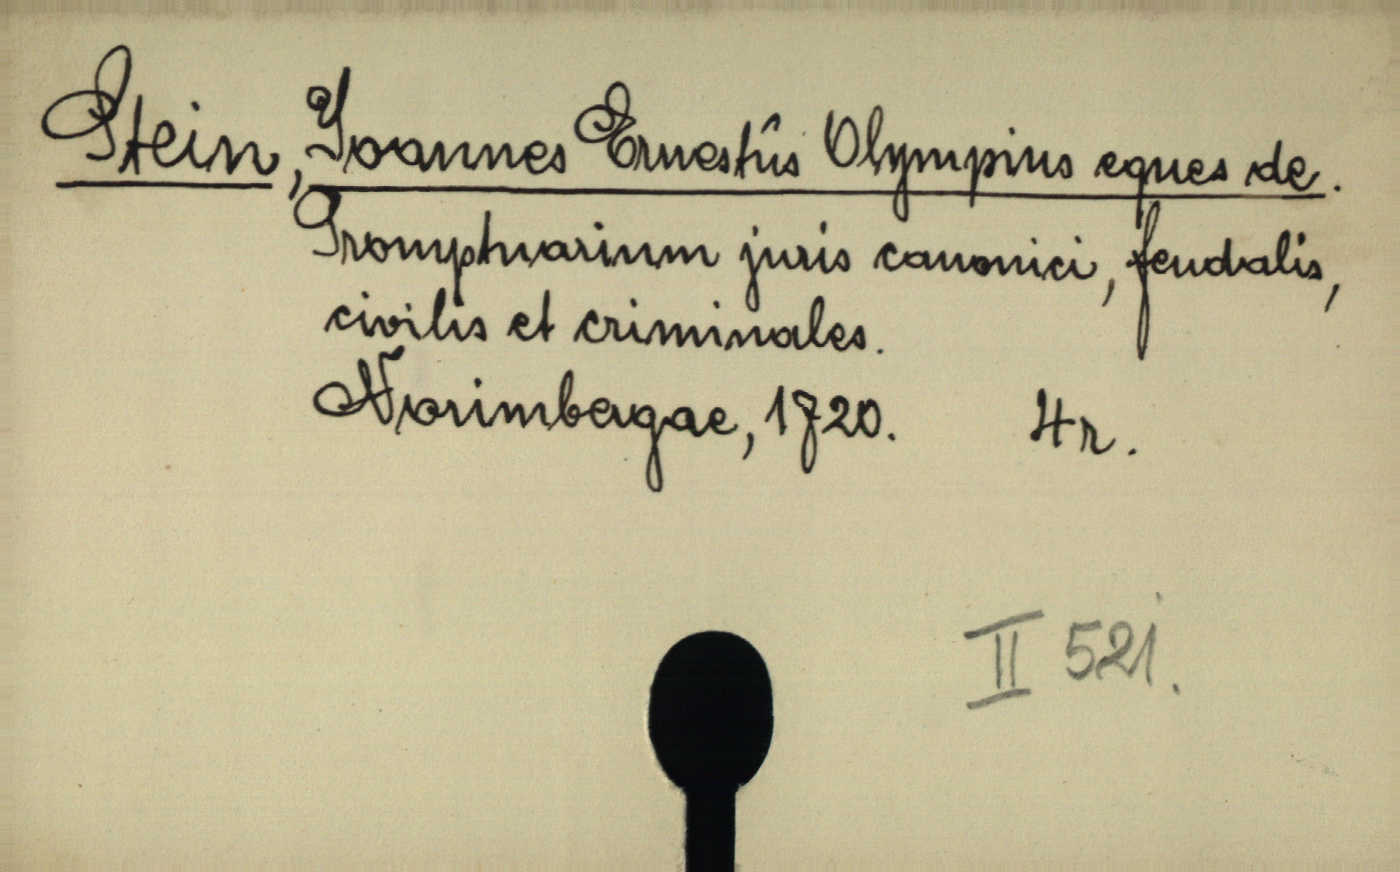 Stein, Joannes Ernestûs Olympius eques de.
Promptuarium juris canonici, feudalis,
civilis et criminales.
Norimbergae, 1720. 4r.
II 521.